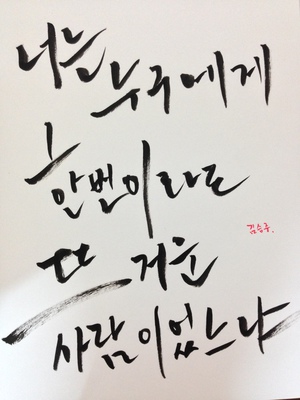 너는 누구에게
한번이라도
뜨거운
사람이었느냐